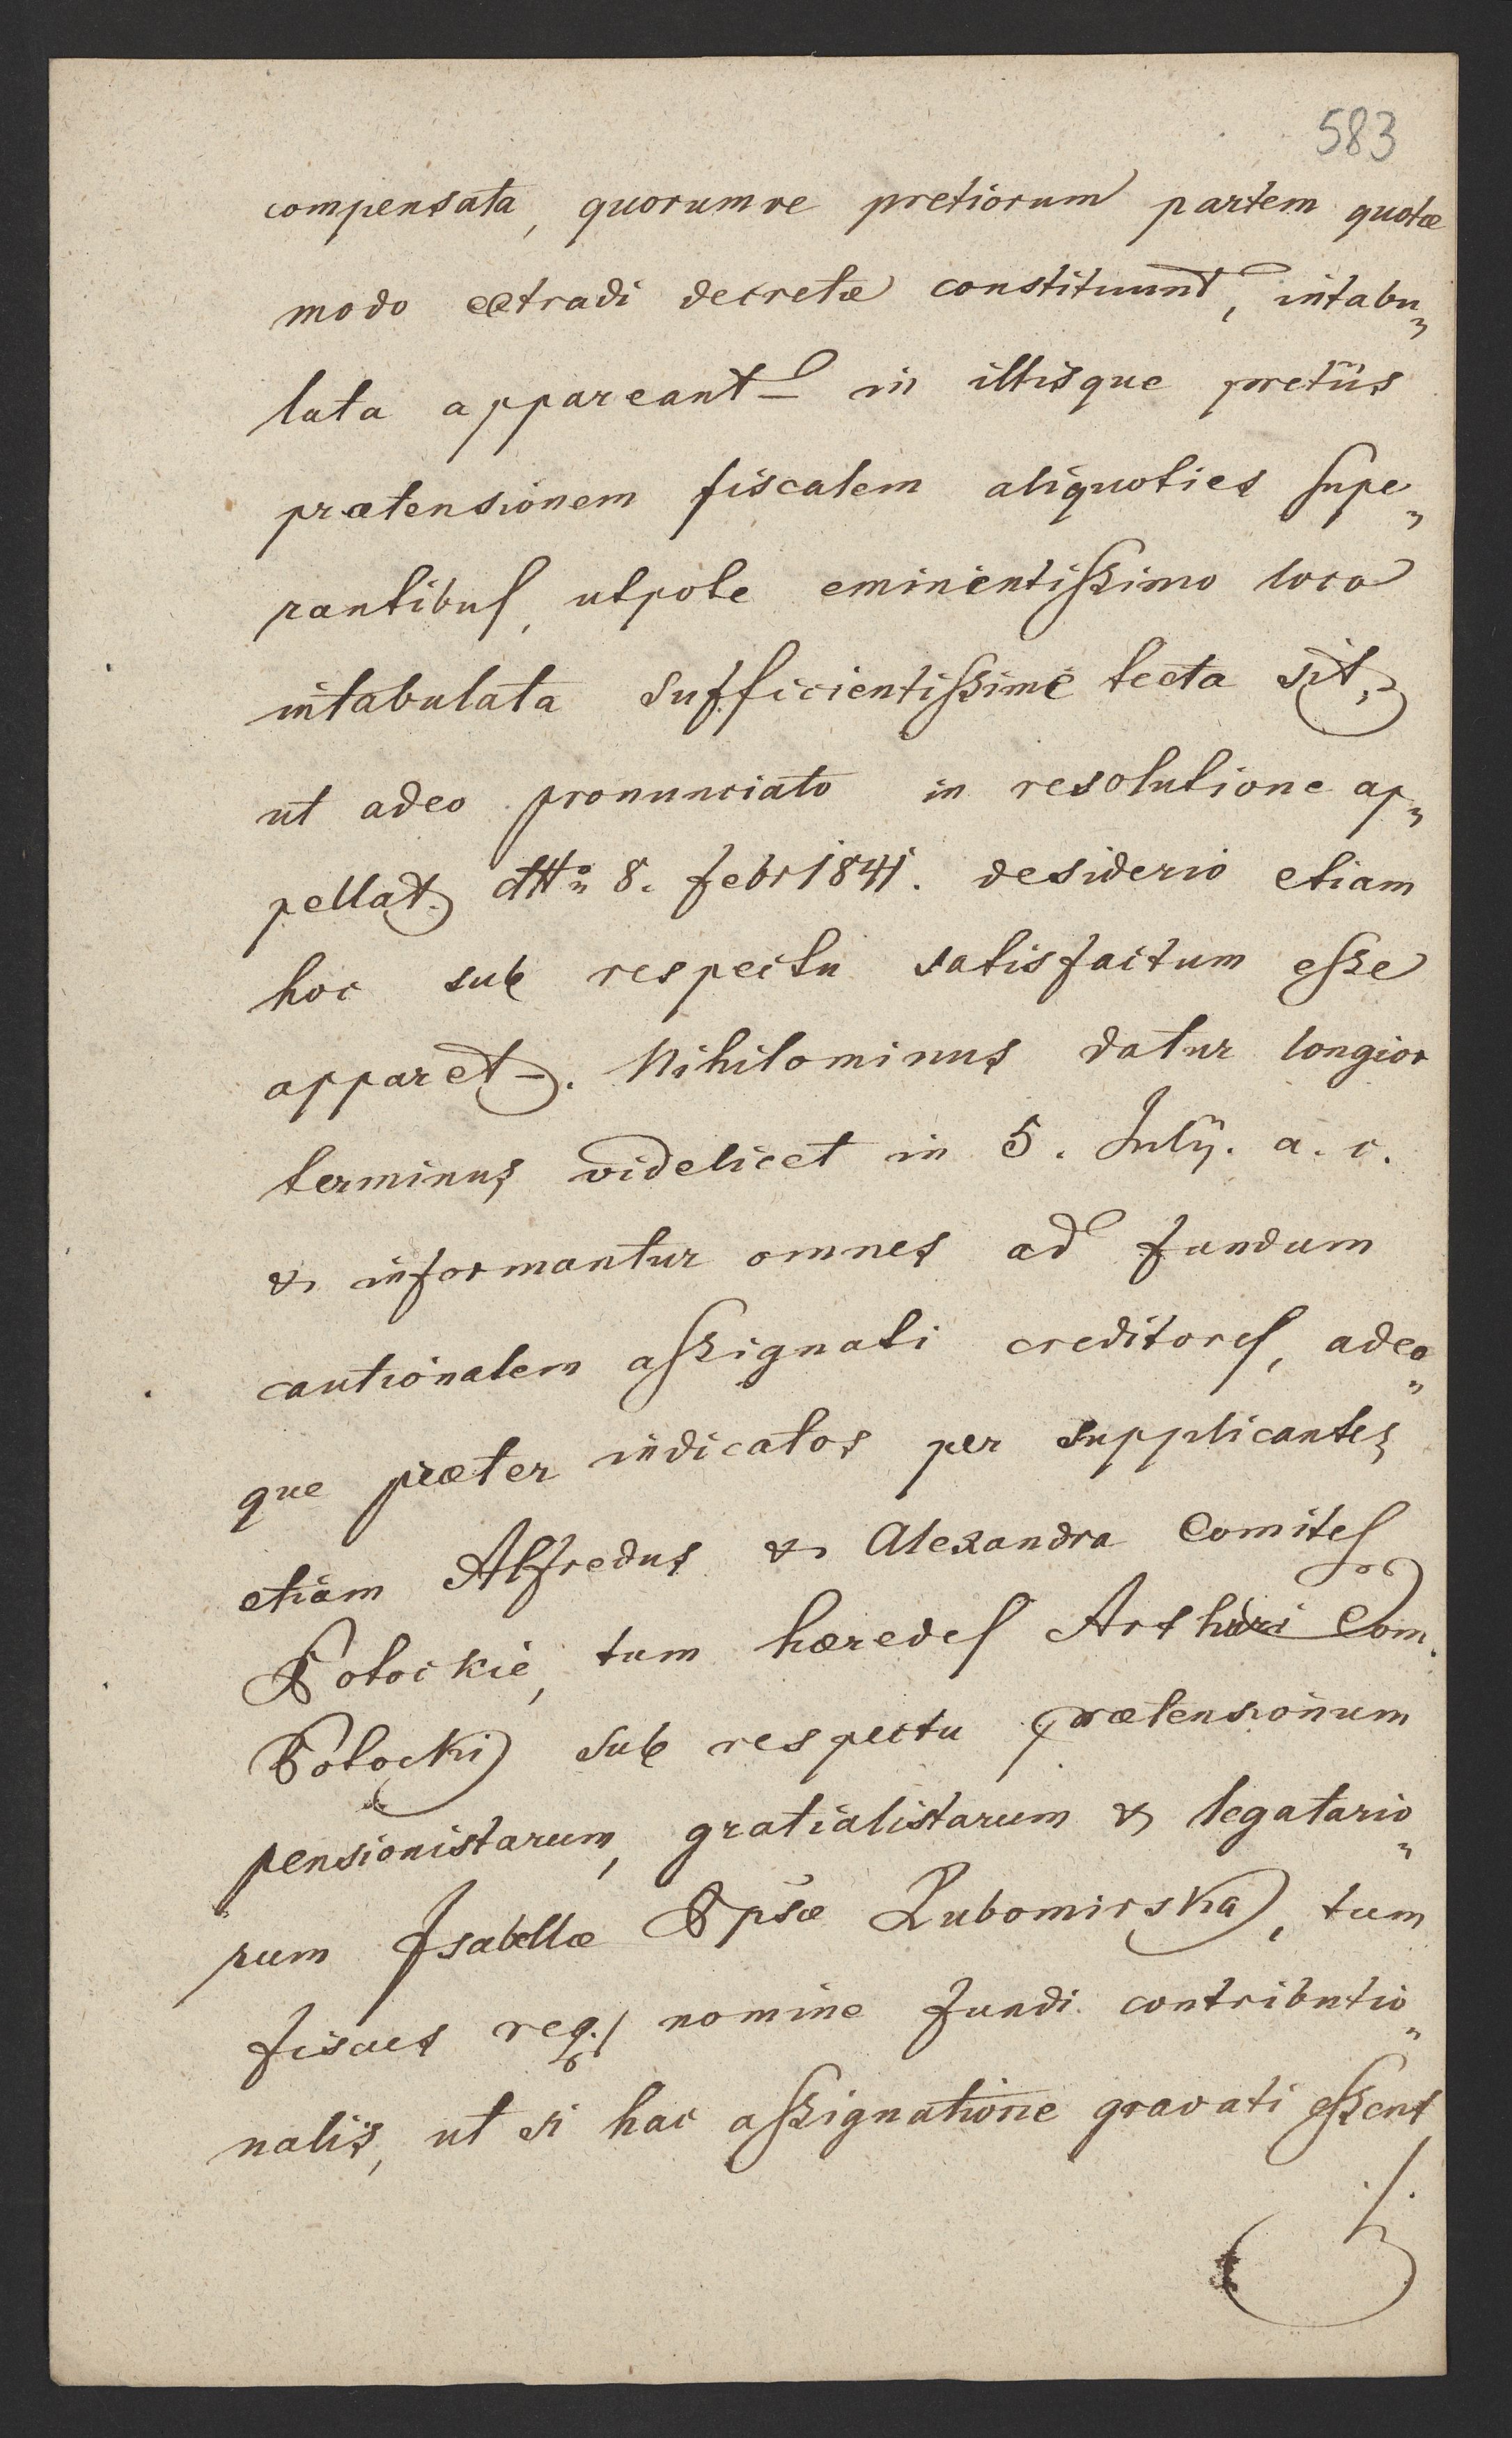 583
compensata, quorumve pretiorum partem quotæ
modo extradi decretæ constituunt, intabu„
lata appareant – in illisque pretiis
prætensionem fiscalem aliquoties supe„
rantibus, utpote eminentissimo loco
intabulata sufficientissimè tecta sit,
ut adeo pronunciato in resolutione ap„
pellat. ddtto 8. febr 1841. desiderio etiam
hoc sub respectu satisfactum esse
apparet –. Nihilominus datur longior
terminus videlicet in 5. July. a. c.
& informantur omnes ad fundum
cautionalem assignati creditores, adeo„
que præter indicatos per supplicantes
etiam Alfredus & Alexandra Comites
Potockie, tum hæredes Arthuri Com.
Potocki sub respectu prætensionum
pensionistarum, gratialistarum & legatario„
rum Isabellæ Ppsæ Lubomirska, tum
fiscus reg./ nomine fundi contributio„
nalis, ut si hac assignatione gravati essent
./.